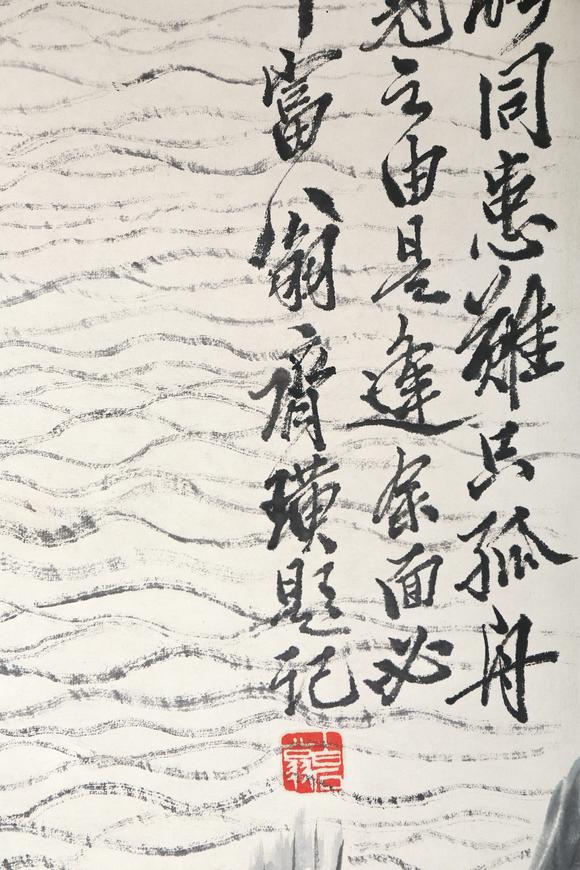 同患難只孤舟
之由是逢余面必
富翁齊璜題記